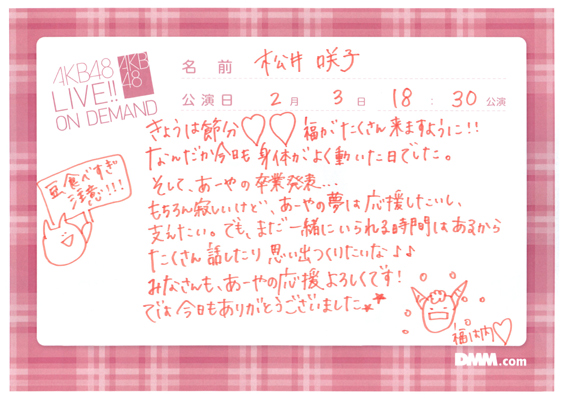 AKB48
LIVE!!
ON DEMAND
AKB
48
名前 松井咲子
公演日 2月 3日 18:30公演
きょうは節分♡♡福がたくさん来ますように!!
なんだか今日も身体がよく動いた日でした。
そして、あーやの卒業発表…
もちろん寂しいけど、あーやの夢は応援したいし、
支えたい。でも、まだ一緒にいられる時間はあるから
たくさん話したり思い出つくりたいな♪♪
みなさんも、あーやの応援よろしくです!
では今日もありがとうございました★★
豆食べすぎ
注意!!!
福は内♡
DMM.com